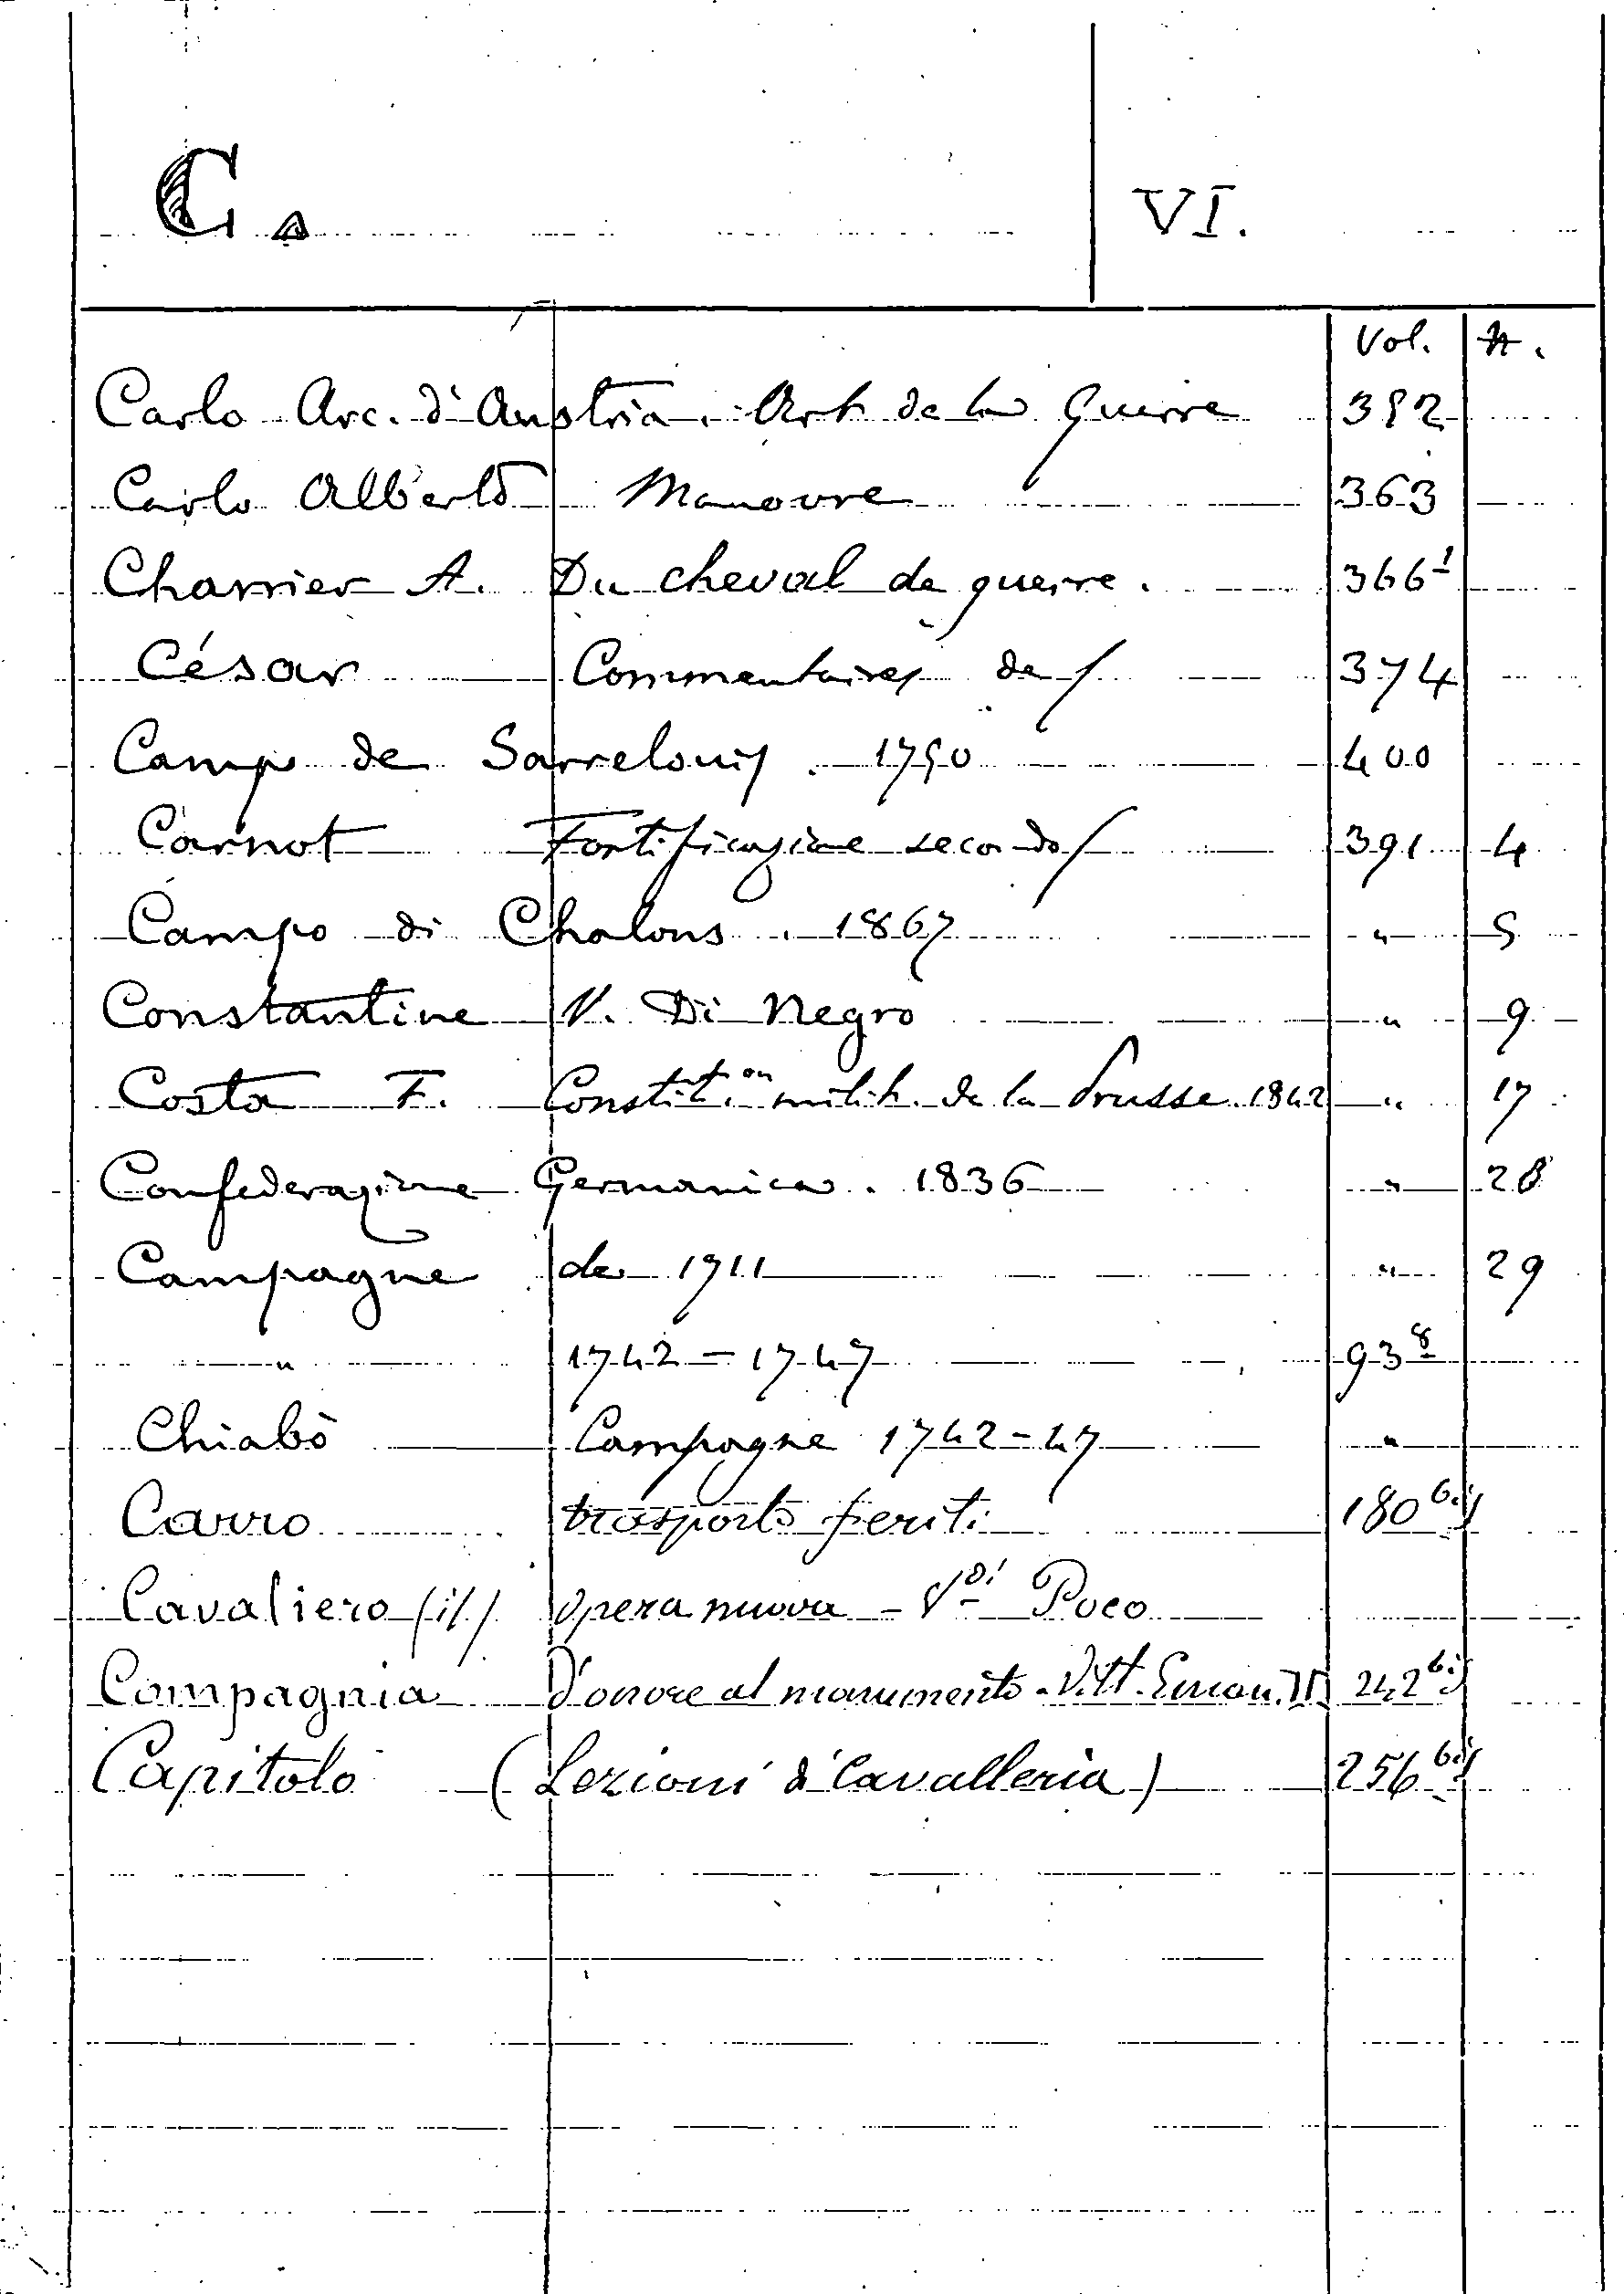 C. VI.
Vol. N.
Carlo Arc. d'Austria. Art de la Guerre 392
Carlo Alberto Manovre 363
Charrier A. Du cheval de guerre. 366 1
César Commentaires de / 374
Camp de Sarrelouis. 1790 400
Carnot Fortificazione secondo / 391 4
Campo di Chalons. 1867 " 5
Constantine V. Di Negro " 9
Costa F. Constitution milit. de la Prusse 1842 " 17
Confederazione Germanica. 1836 " 28
Campagne de 1711 " 29
" 1742 - 1747 93 8
Chiabò Campagne 1742-47 "
Carro trasporto feriti 180 bis
Cavaliero (il) opera nuova - Vdi Poco
Compagnia d'onore al monumento - Vitt. Eman. II 242 bis
Capitolo (Lezioni di Cavalleria) 256 bis